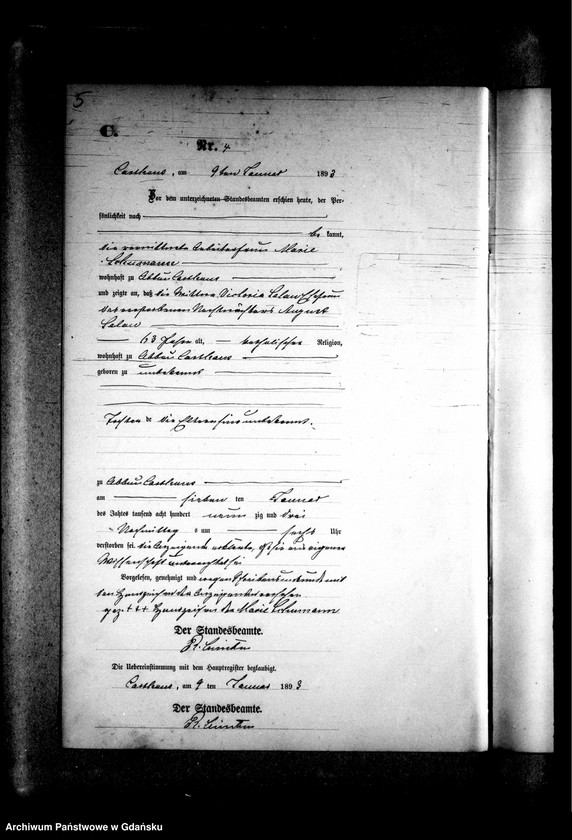 5
C.
Nr. 4
Carthaus, am 9ten Januar 1893
Vor dem unterzeichneten Standesbeamten erschien heute, der Per-
sönlichkeit nach
be kannt,
die verwittwete Arbeiterfrau Marie
Schumann
wohnhaft zu Abbau Carthaus
und zeigte an, daß die Wittwe Victoria Ehefrau
des verstorbenen Nachtwächters August
63 Jahre alt, katholischer Religion,
wohnhaft zu Abbau Carthaus
geboren zu unbekannt
Tochter der die Eltern sind unbekannt.
zu Abbau Carthaus
am sieben ten Januar
des Jahres tausend acht hundert neun zig und drei
Nachmittag s um sechs Uhr
verstorben sei. die Anzeigende erklärte, daß sie aus eigener
Wissenschaft unterrichtet sei
Vorgelesen, genehmigt und wegen Schreibensunkunde mit
den Handzeichen der Anzeigenden versehen
gez. +++ Handzeichen der Marie Schumann
Der Standesbeamte.
Die Uebereinstimmung mit dem Hauptregister beglaubigt.
Carthaus, am 9 ten Januar 1893
Der Standesbeamte.
Archiwum Państwowe w Gdańsku